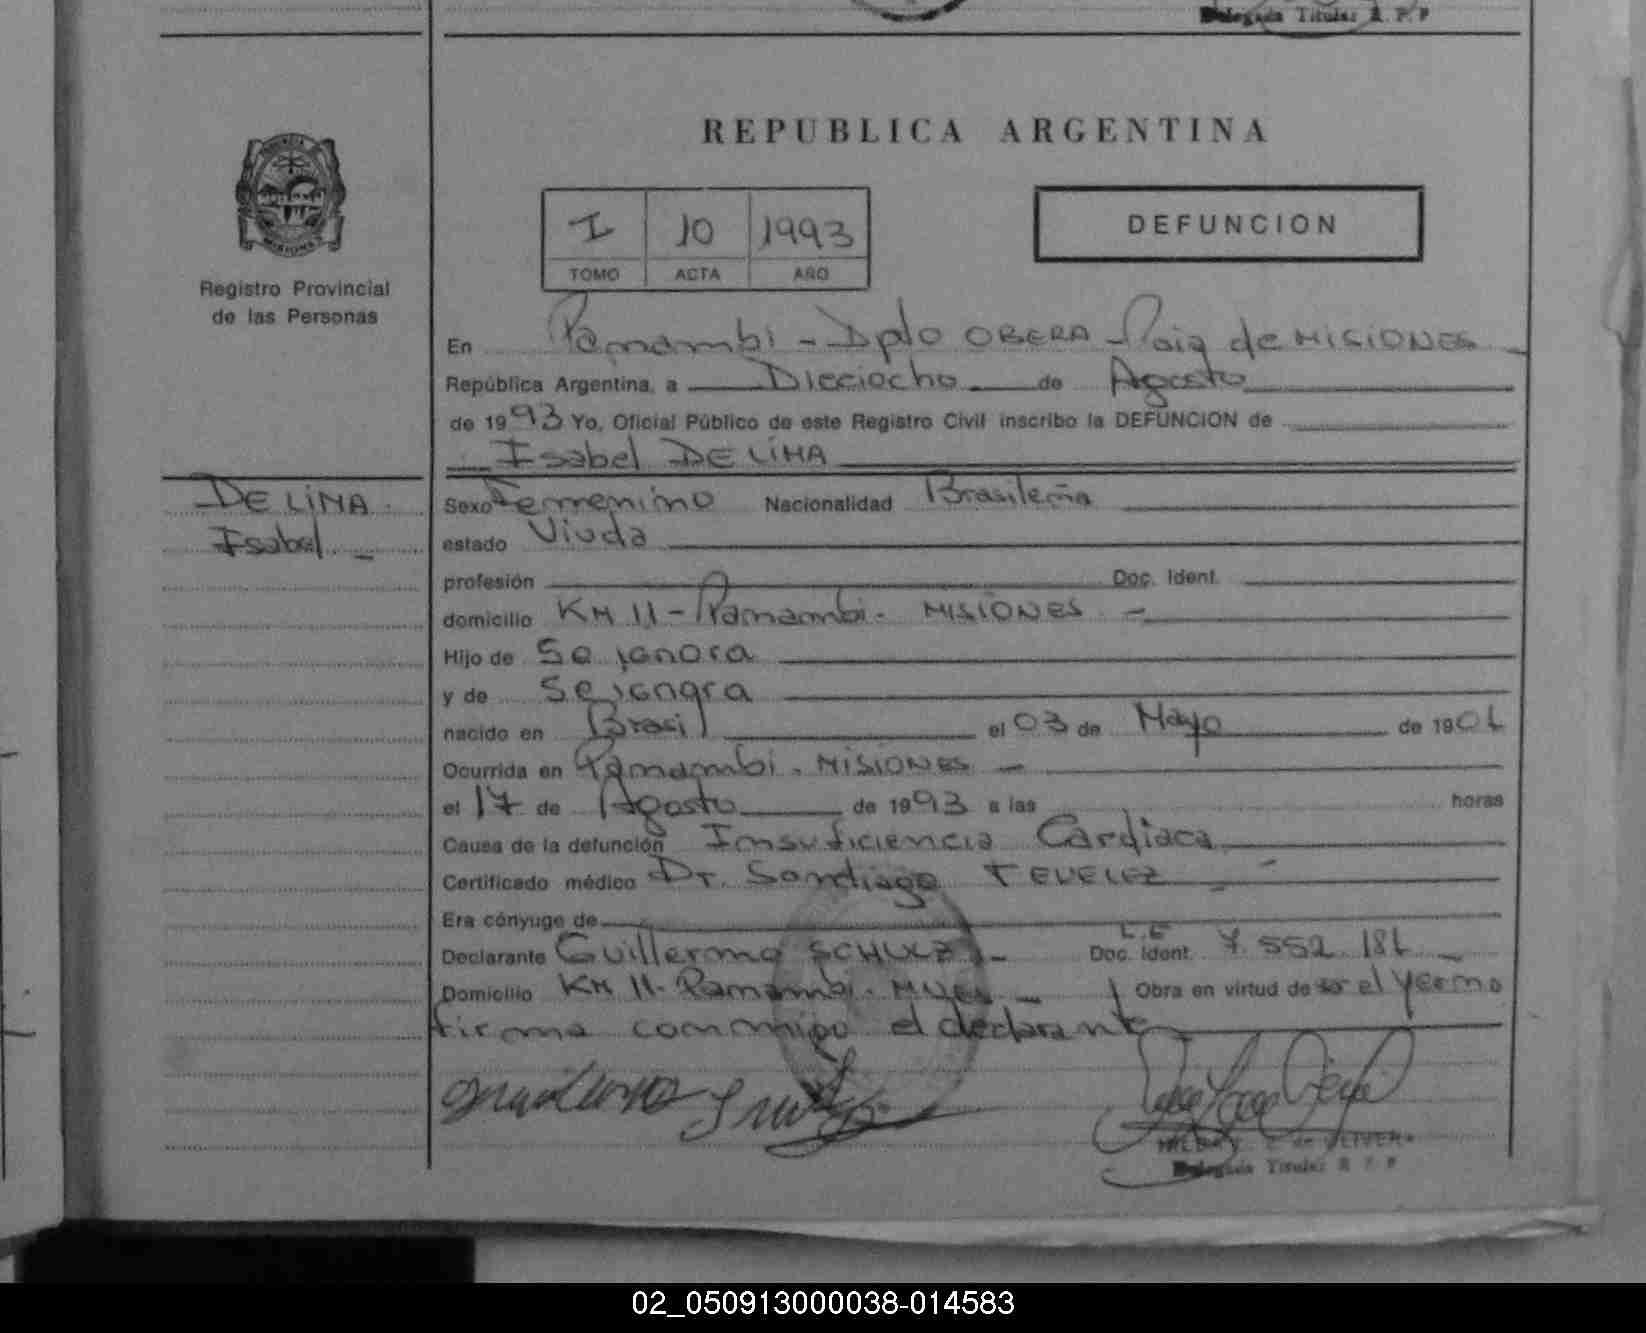 Delegada Titular R. P. P
REPUBLICA ARGENTINA
I 10 1993
TOMO ACTA AÑO
DEFUNCION
PROVINCIA
MISIONES
Registro Provincial
de las Personas
En Panambi - Dpto OBERA - Pcia de MISIONES
República Argentina, a Dieciocho de Agosto
de 1993 Yo, Oficial Público de este Registro Civil inscribo la DEFUNCION de
Isabel DE LIMA
DE LIMA
Isabel
Sexo Femenino Nacionalidad Brasileña
estado Viuda
profesión Doc. Ident.
domicilio KM 11 - Panambi - MISIONES -
Hijo de Se ignora
y de Se ignora
nacido en Brasil el 03 de Mayo de 1901
Ocurrida en Panambi - MISIONES -
el 17 de Agosto de 1993 a las horas
Causa de la defunción Insuficiencia Cardiaca
Certificado médico Dr. Santiago
Era cónyuge de
Declarante Guillermo SCHULZ - L.E Doc. Ident. 7.552.181 -
Domicilio KM 11 - Panambi - MNES - Obra en virtud de ser el Yerno
firma conmigo el declarante
Delegada Titular R. P. P
02_050913000038-014583